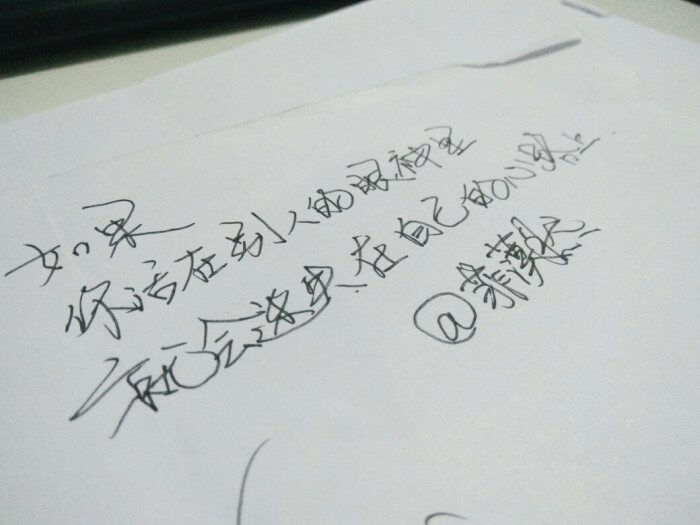 如果
你活在别人的眼神里
就会迷失在自己的心路上
@菲薄